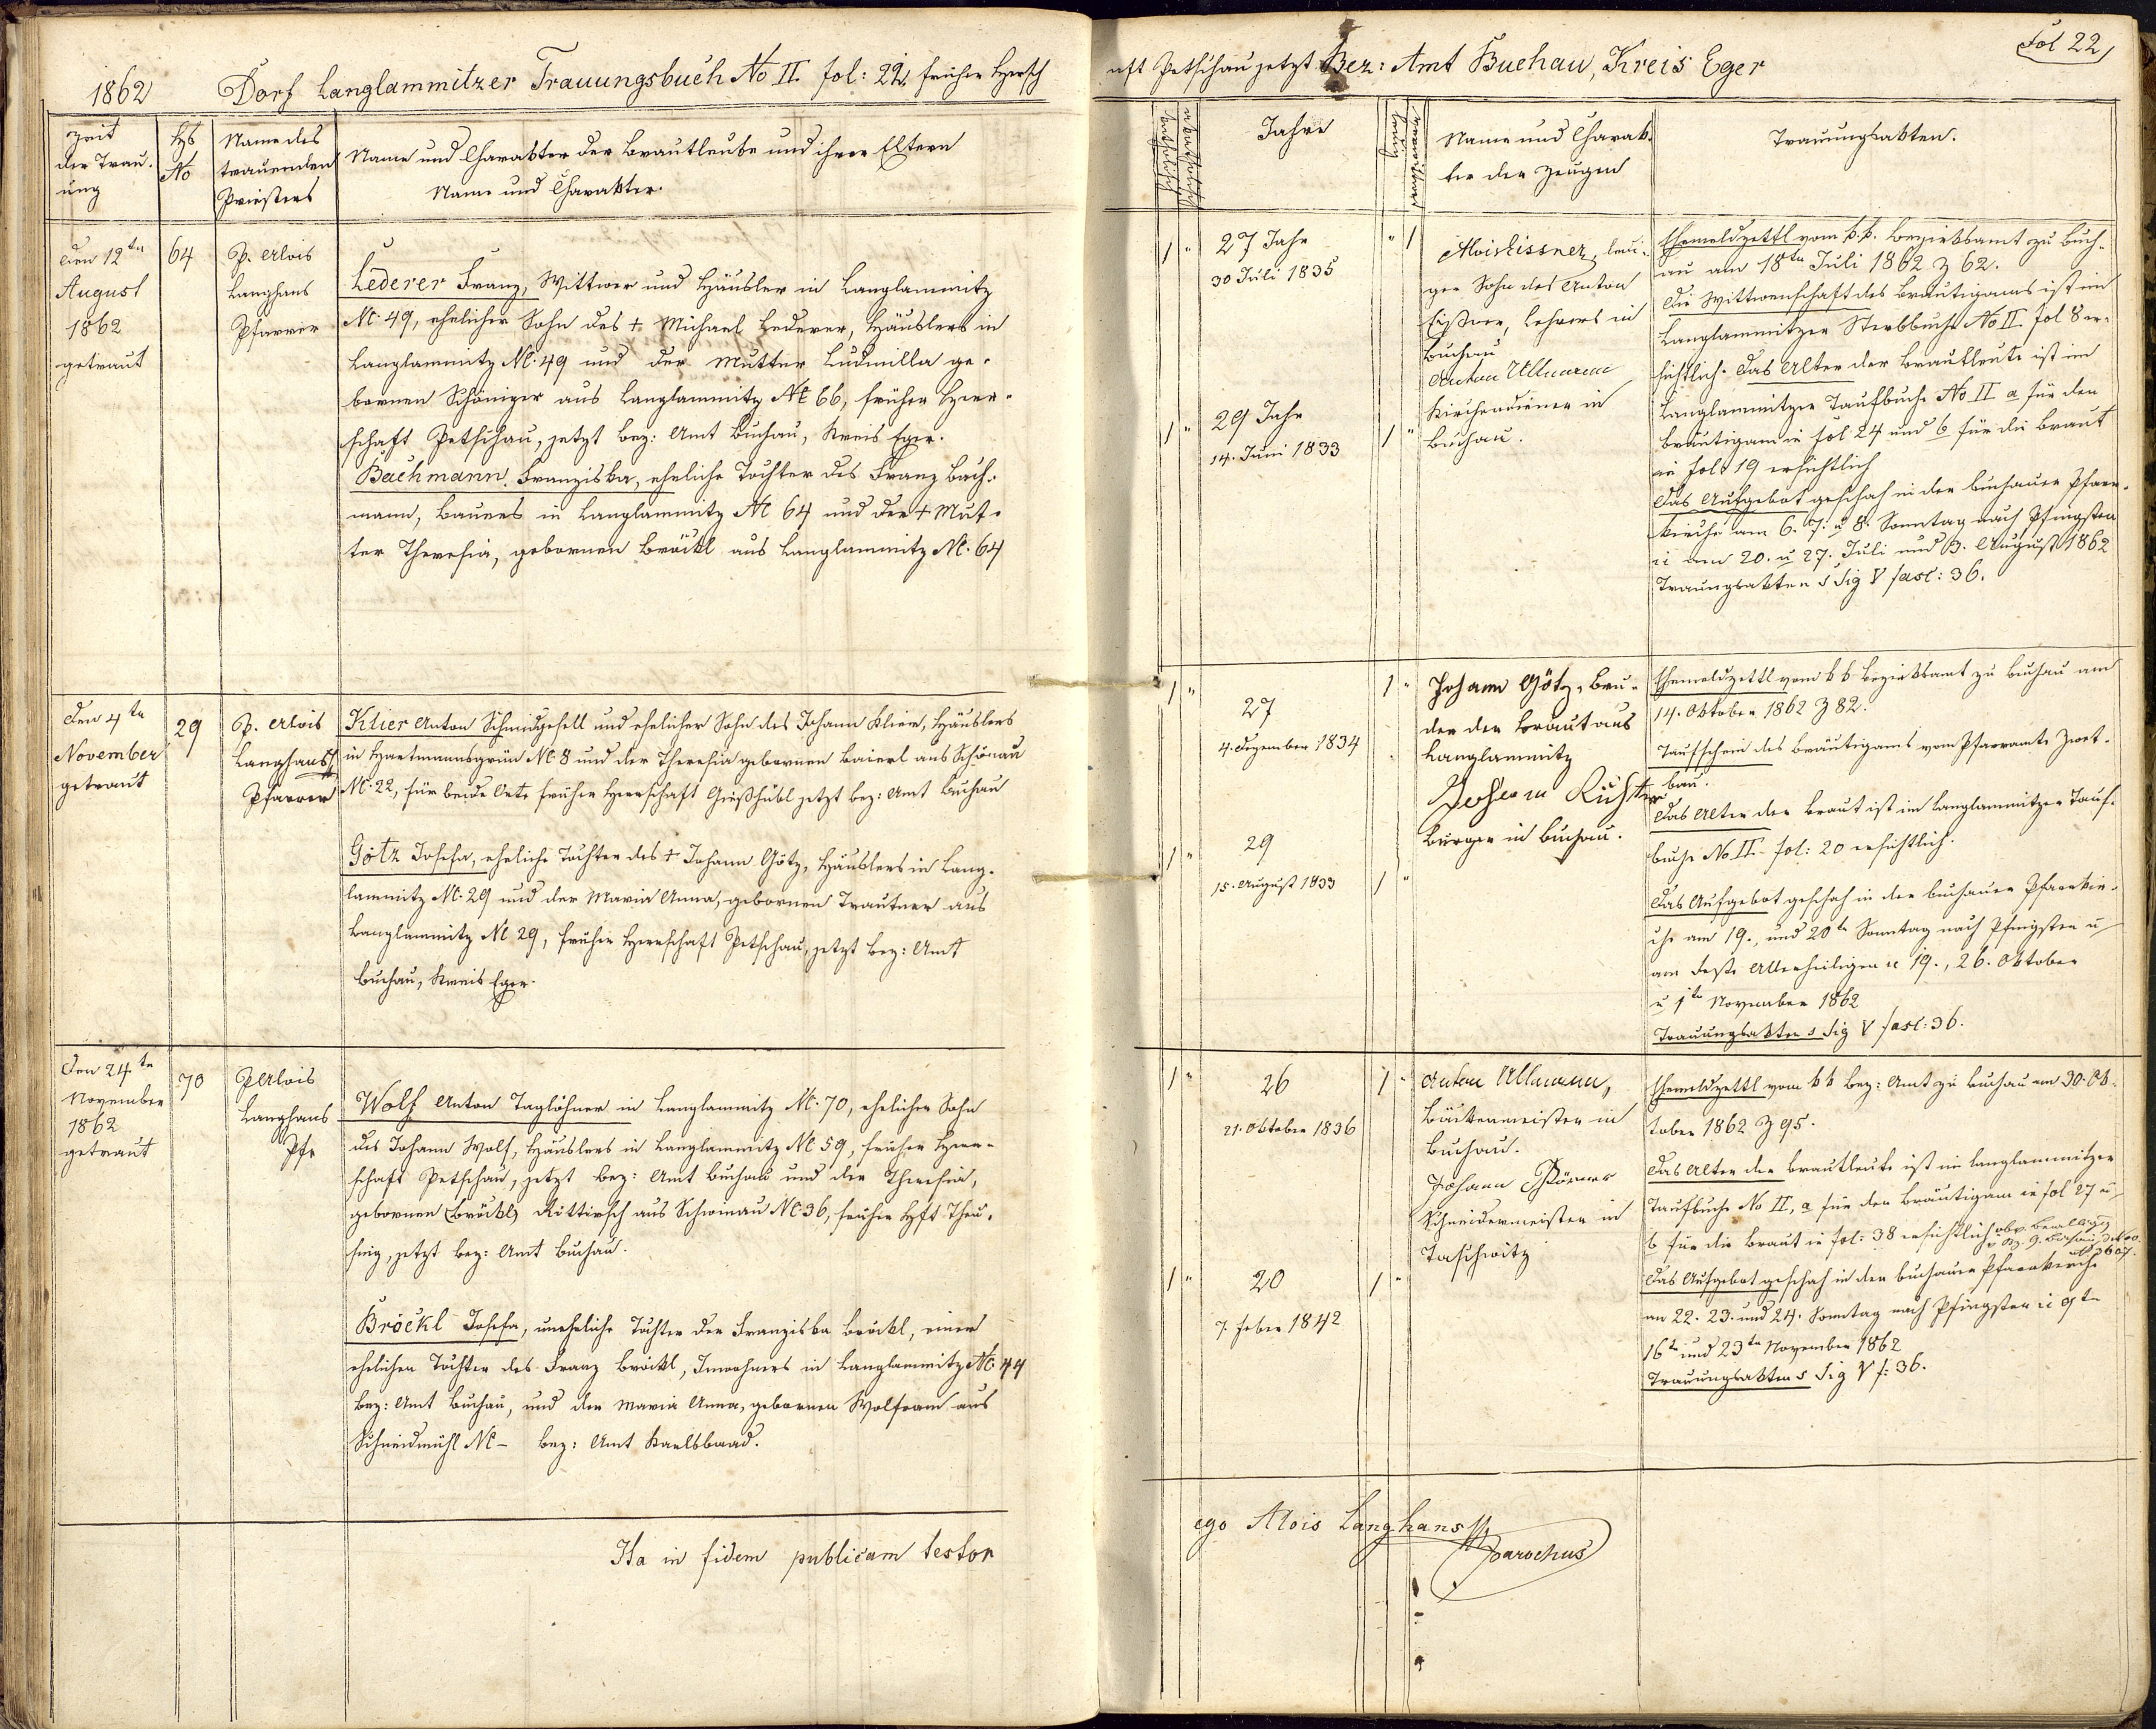 1862 Dorf Langlammitzer Trauungsbuch No II. fol: 22, früher Hersch
Zeit der Trauung
Hs No
Name des trauenden Priesters
Name und Charakter der Brautleute und ihrer Eltern
Name und Charakter.
den 12ten
August
1862
getraut
64
P. Alois
Langhans
Pfarrer
Lederer Franz, Wittwer und Häusler in Langlammitz
N. 49, ehelicher Sohn des + Michael Lederer, Häuslers in
Langlammitz N. 49 und der Mutter Ludmilla ge-
bornen Schöniger aus Langlammitz N. 66, früher Herr-
schaft Petschau, jetzt Bez: Amt Buchau, Kreis Eger.
Bachmann Franziska, eheliche Tochter des Franz Bach-
mann, Bauers in Langlammitz N. 64 und der + Mut-
ter Theresia, gebornen Bröckl aus Langlammitz N. 64
den 4ten
November
getraut
29
P. Alois
Langhans
Pfarrer
Klier Anton Schmidgesell und ehelicher Sohn des Johann Klier, Häuslers
in Hartmannsgrün N. 8 und der Theresia gebornen Baierl aus Schönau
N. 22, für beide Orte früher Herrschaft Gießhübl jetzt Bez: Amt Buchau
Götz Josefa, eheliche Tochter des + Johann Götz, Häuslers in Lang-
lammitz N. 29 und der Maria Anna, gebornen Trautner aus
Langlammitz N. 29, früher Herrschaft Petschau, jetzt Bez: Amt
Buchau, Kreis Eger.
den 24ten
November
1862
getraut
70
P Alois
Langhans
Pfr
Wolf Anton Taglöhner in Langlammitz N. 70, ehelicher Sohn
des Johann Wolf, Häuslers in Langlammitz N. 59, früher Herr-
schaft Petschau, jetzt Bez: Amt Buchau und der Theresia,
gebornen (Bröckl) aus N. 36, früher Hft Theu-
sing, jetzt Bez: Amt Buchau.
Bröckl Josefa, uneheliche Tochter der Franziska Bröckl, einer
ehelichen Tochter des Franz Bröckl, Inwohners in Langlammitz No. 44
Bez: Amt Buchau, und der Maria Anna, gebornen Wolfram aus
Schneidmühl N. – Bez: Amt Karlsbaad.
Ita in fidem publicam testor
aft Petschau jetzt Bez: Amt Buchau, Kreis Eger
Fol 22
Jahre
Name und Charak-
ter der Zeugen
Trauungsakten.
1 "
27 Jahr
30 Juli 1835
" 1
1 "
29 Jahr
14. Juni 1833
1 "
Alois Eissner, ledi-
ger Sohn des Anton
Eißner, Lehrers in
Buchau
Anton Ullmann
Kirchendiener in
Buchau.
Ehemeldzettl vom k.k. Bezirksamt zu Buch-
au am 18ten Juli 1862 Z 62.
Die Wittwenschaft des Bräutigams ist im
Langlammitzer Sterbbuche No II. fol 8 er-
sichtlich. Das Alter der Brautleute ist im
Langlammitzer Taufbuche No II a für den
Bräutigam in fol. 24 und b für die Braut
in fol. 19 ersichtlich
Das Aufgebot geschah in der Buchauer Pfarr-
kirche am 6. 7. u 8. Sonntag nach Pfingsten
ii den 20. u 27. Juli und 3. August 1862
Trauungsakten s Sig V fasc: 36.
1 "
27
4. Dezember 1834
1 "
1 "
29
15. August 1833
1 "
Johann Götz, Bru-
der der Braut aus
Langlammitz
Johann Richter
Bürger in Buchau.
Ehemeldzettl vom kk Bezirksamt zu Buchau am
14. Oktober 1862 Z 82.
Taufschein des Bräutigams vom Pfarramte Zwet-
bau.
Das Alter der Braut ist im Langlammitzer Tauf-
buche No II. fol: 20 ersichtlich.
Das Aufgebot geschah in der Buchauer Pfarrkir-
che am 19., und 20ten Sonntag nach Pfingsten u
am Feste Allerheiligen ii 19., 26. Oktober
u 1ten November 1862
Trauungsakten s Sig V fasc: 36.
1 "
26
21. Oktober 1836
1 "
1 "
20
7. Feber 1842
1 "
Anton Ullmann,
Bäckermeister in
Buchau.
Johann Körner
Schneidermeister in
Taschwitz
Ehemeldzettl vom kk Bez: Amt zu Buchau am 30. Ok-
tober 1862 Z 95.
Das Alter der Brautleute ist im Langlammitzer
Taufbuche No II, a für den Bräutigam in fol 27 u
b für die Braut in fol: 38 ersichtlich
Das Aufgebot geschah in der Buchauer Pfarrkirche
am 22. 23. und 24. Sonntag nach Pfingsten ii 9ten
16ten und 23ten November 1862
Trauungsakten s Sig V f: 36.
ego Alois Langhans
Parochus